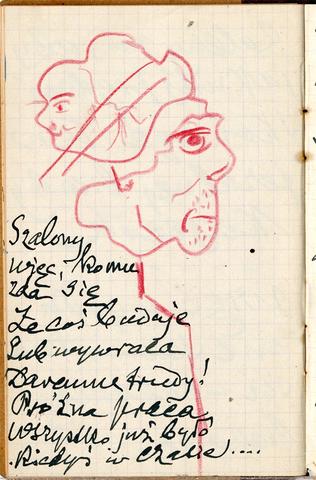 Szalony
więc, komu
zda się
Że coś buduje
Lub wywraca
Daremne trudy!
Próżna praca
Wszystko już było
Kiedyś w czasie....